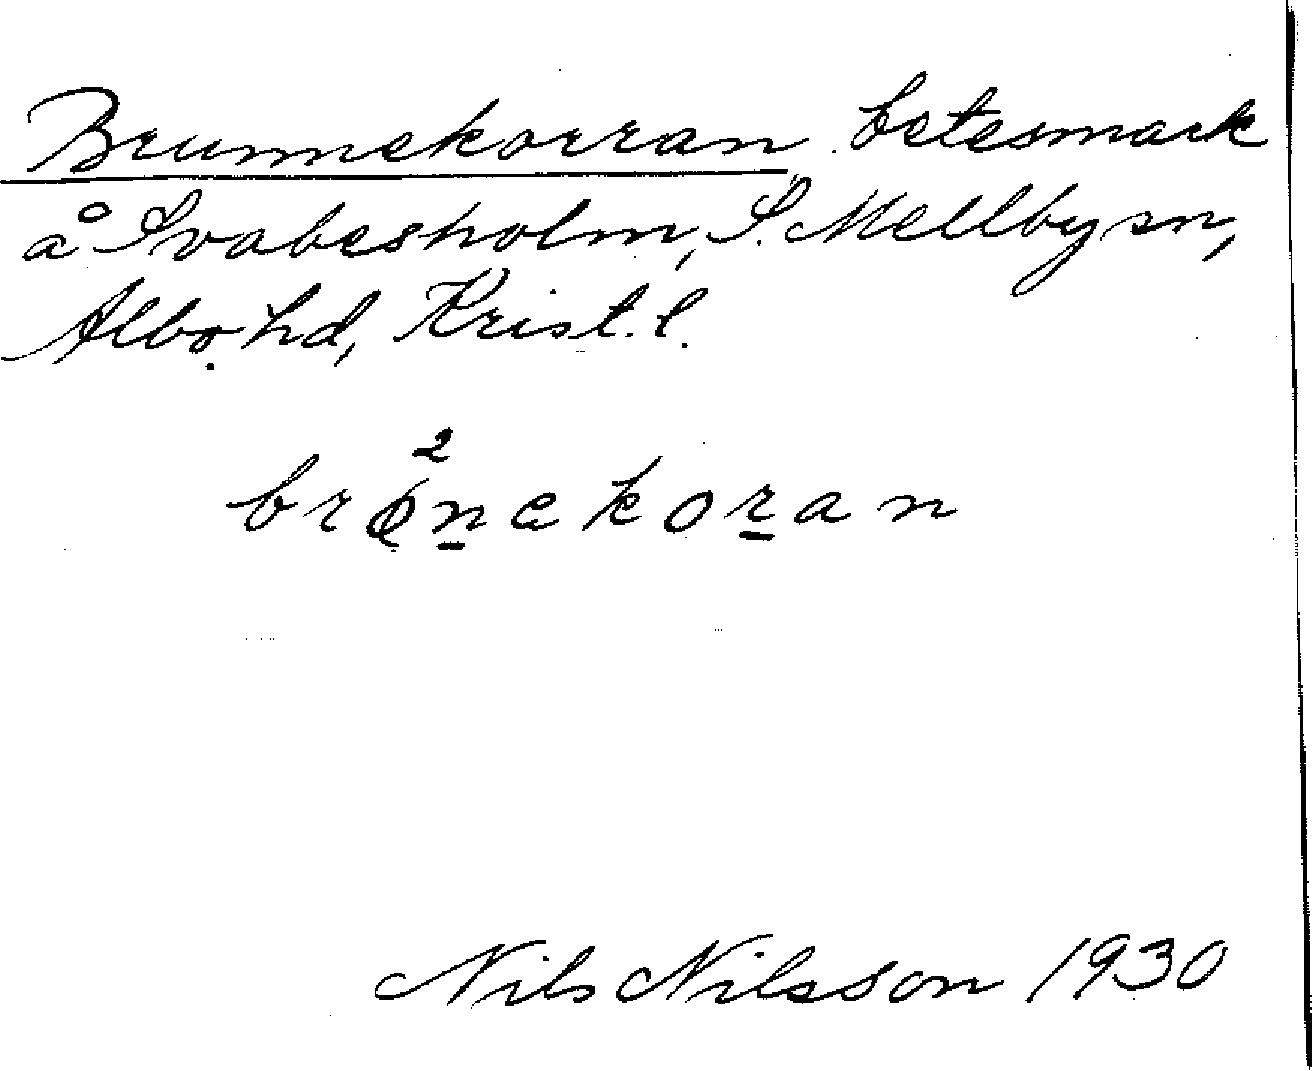 Brunnekorran betesmark
å Svabesholm, S. Mellby sn,
Albo hd, Krist. l.
2
brønekoran
Nils Nilsson 1930